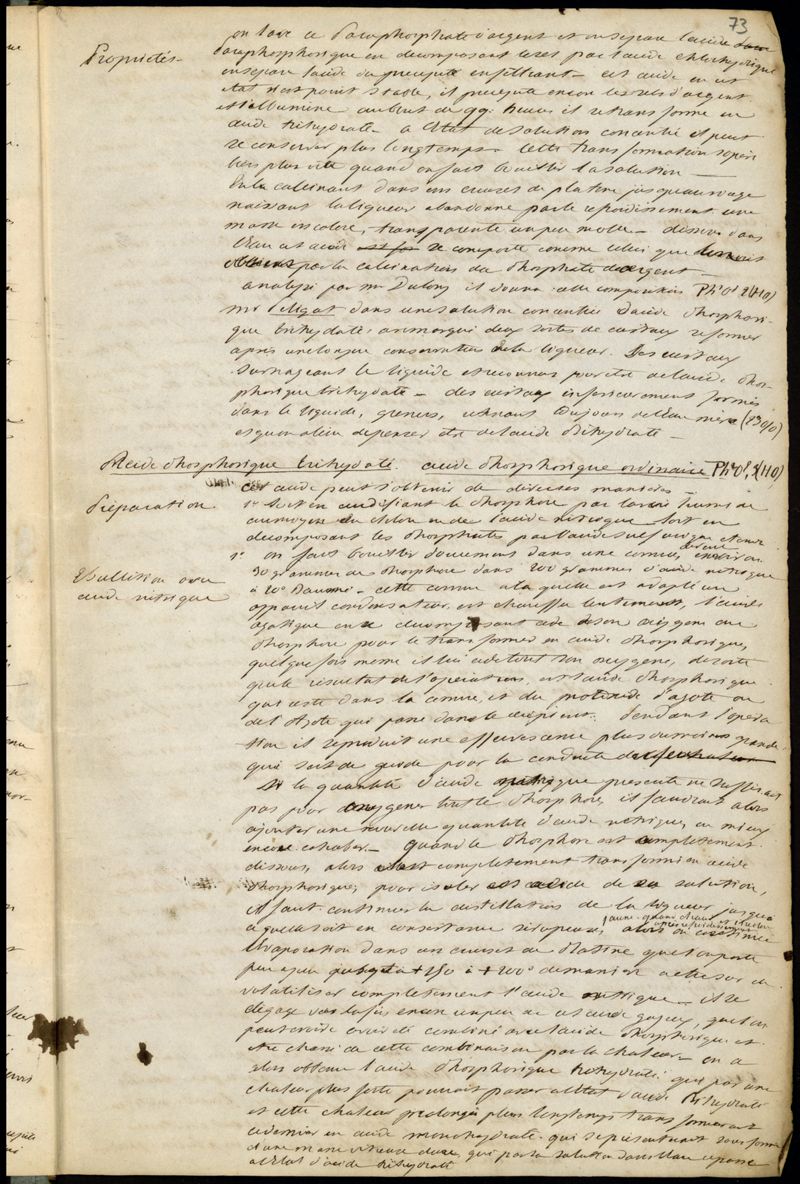 73
on lave ce paraphosphate d'argent et on separe l'acide
Propriétés
paraphosphorique en decomposant le sel par l'acide chlorhydrique
on separe l'acide du precipité en filtrant cet acide en cet
etat n'est point stable, il precipite encore les sels d'argent
et l'albumine au bout de qq. heures il se transforme en
acide trihydraté à l'état de solution concentrée il peut
se conserver plus longtemps cette transformation s'opère
bien plus vite quand on fait bouillir la solution
En la calcinant dans un creuset de platine jusqu'au rouge
naissant la liqueur abandonne par le refroidissement une
masse incolore, transparente un peu molle dissous dans
l'eau cet acide se comporte comme celui que
par la calcination du phosphate d'argent
analysé par mr Dulong il donna cette composition Ph²O⁵ 2(HO)
mr Peligot dans une solution concentrée d'acide phosphori-
que trihydraté a remarqué deux sortes de cristaux se former
après une longue conservation de la liqueur. Les cristaux
surnageant le liquide et reconnus pour être de l'acide phos-
phorique trihydraté des cristaux inferieurement formés
dans le liquide, grenus, retenant toujours de l'eau mère (13 0/0)
et qu'on a lieu de penser être de l'acide bihydraté
Acide phosphorique trihydraté. acide phosphorique ordinaire Ph²O⁵, 3(HO)
cet acide peut s'obtenir de diverses manières
Préparation
1° soit en acidifiant le phosphore par
au moyen du chlore ou de l'acide nitrique soit en
decomposant les phosphates par l'acide sulfurique
1° on fait bouillir doucement dans une cornue environ
Ebullition avec
acide nitrique
30 grammes de phosphore dans 200 grammes d'acide nitrique
à 20° Baumé cette cornue à laquelle est adapté un
appareil condensateur est chauffée lentement, l'acide
azotique en se decomposant cede de son oxygene au
phosphore pour le transformer en acide phosphorique,
quelquefois meme il lui cede tout son oxygene, de sorte
que le resultat de l'operation est l'acide phosphorique
qui reste dans la cornue et du protoxide d'azote ou
de l'azote qui passe dans le recipient. Pendant l'opera
tion il se produit une effervescence plus ou moins grande
qui sert de guide pour la conduite
Si la quantité d'acide nitrique presente ne suffisait
pas pour oxygener tout le phosphore, il faudrait alors
ajouter une nouvelle quantité d'acide nitrique, ou mieux
encore cohober. quand le phosphore est completement
dissous, alors il est completement transformé en acide
phosphorique; pour isoler cet acide de sa solution,
il faut continuer la distillation de la liqueur jusqu'à
ce qu'elle soit en consistance sirupeuse, alors on continue
l'evaporation dans un creuset de platine que l'on porte
peu à peu jusqu'à +150 à +200° de manière à chasser ou
volatiliser completement l'acide nitrique il se
degage vers la fin encore un peu de cet acide gazeux, que l'on
peut croire avoir été combiné avec l'acide phosphorique et
etre chassé de cette combinaison par la chaleur on a
alors obtenu l'acide phosphorique trihydraté qui par une
chaleur plus forte pourrait passer à l'état d'acide bihydraté
et cette chaleur prolongée plus longtemps transformerait
ce dernier en acide monohydraté qui se presenterait sous forme
d'une masse vitreuse dure, qui par sa solution dans l'eau repasse
à l'état d'acide trihydraté